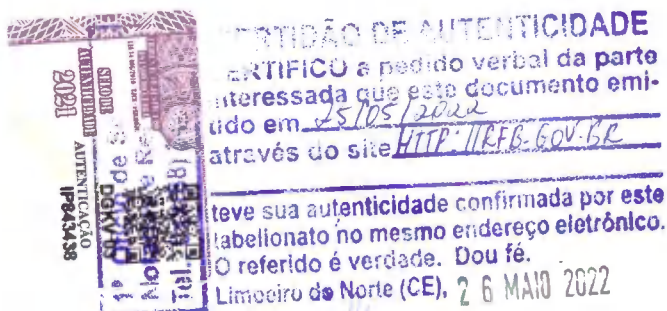 CERTIDÃO DE AUTENTICIDADE
CERTIFICO a pedido verbal da parte
interessada que este documento emi-
tido em 25/05/2022
através do site HTTP://RFB.GOV.BR
teve sua autenticidade confirmada por este
tabelionato no mesmo endereço eletrônico.
O referido é verdade. Dou fé.
Limoeiro do Norte (CE), 26 MAIO 2022
SELO DE
AUTENTICIDADE
2021
AUTENTICAÇÃO
IP843438
1º
Tel